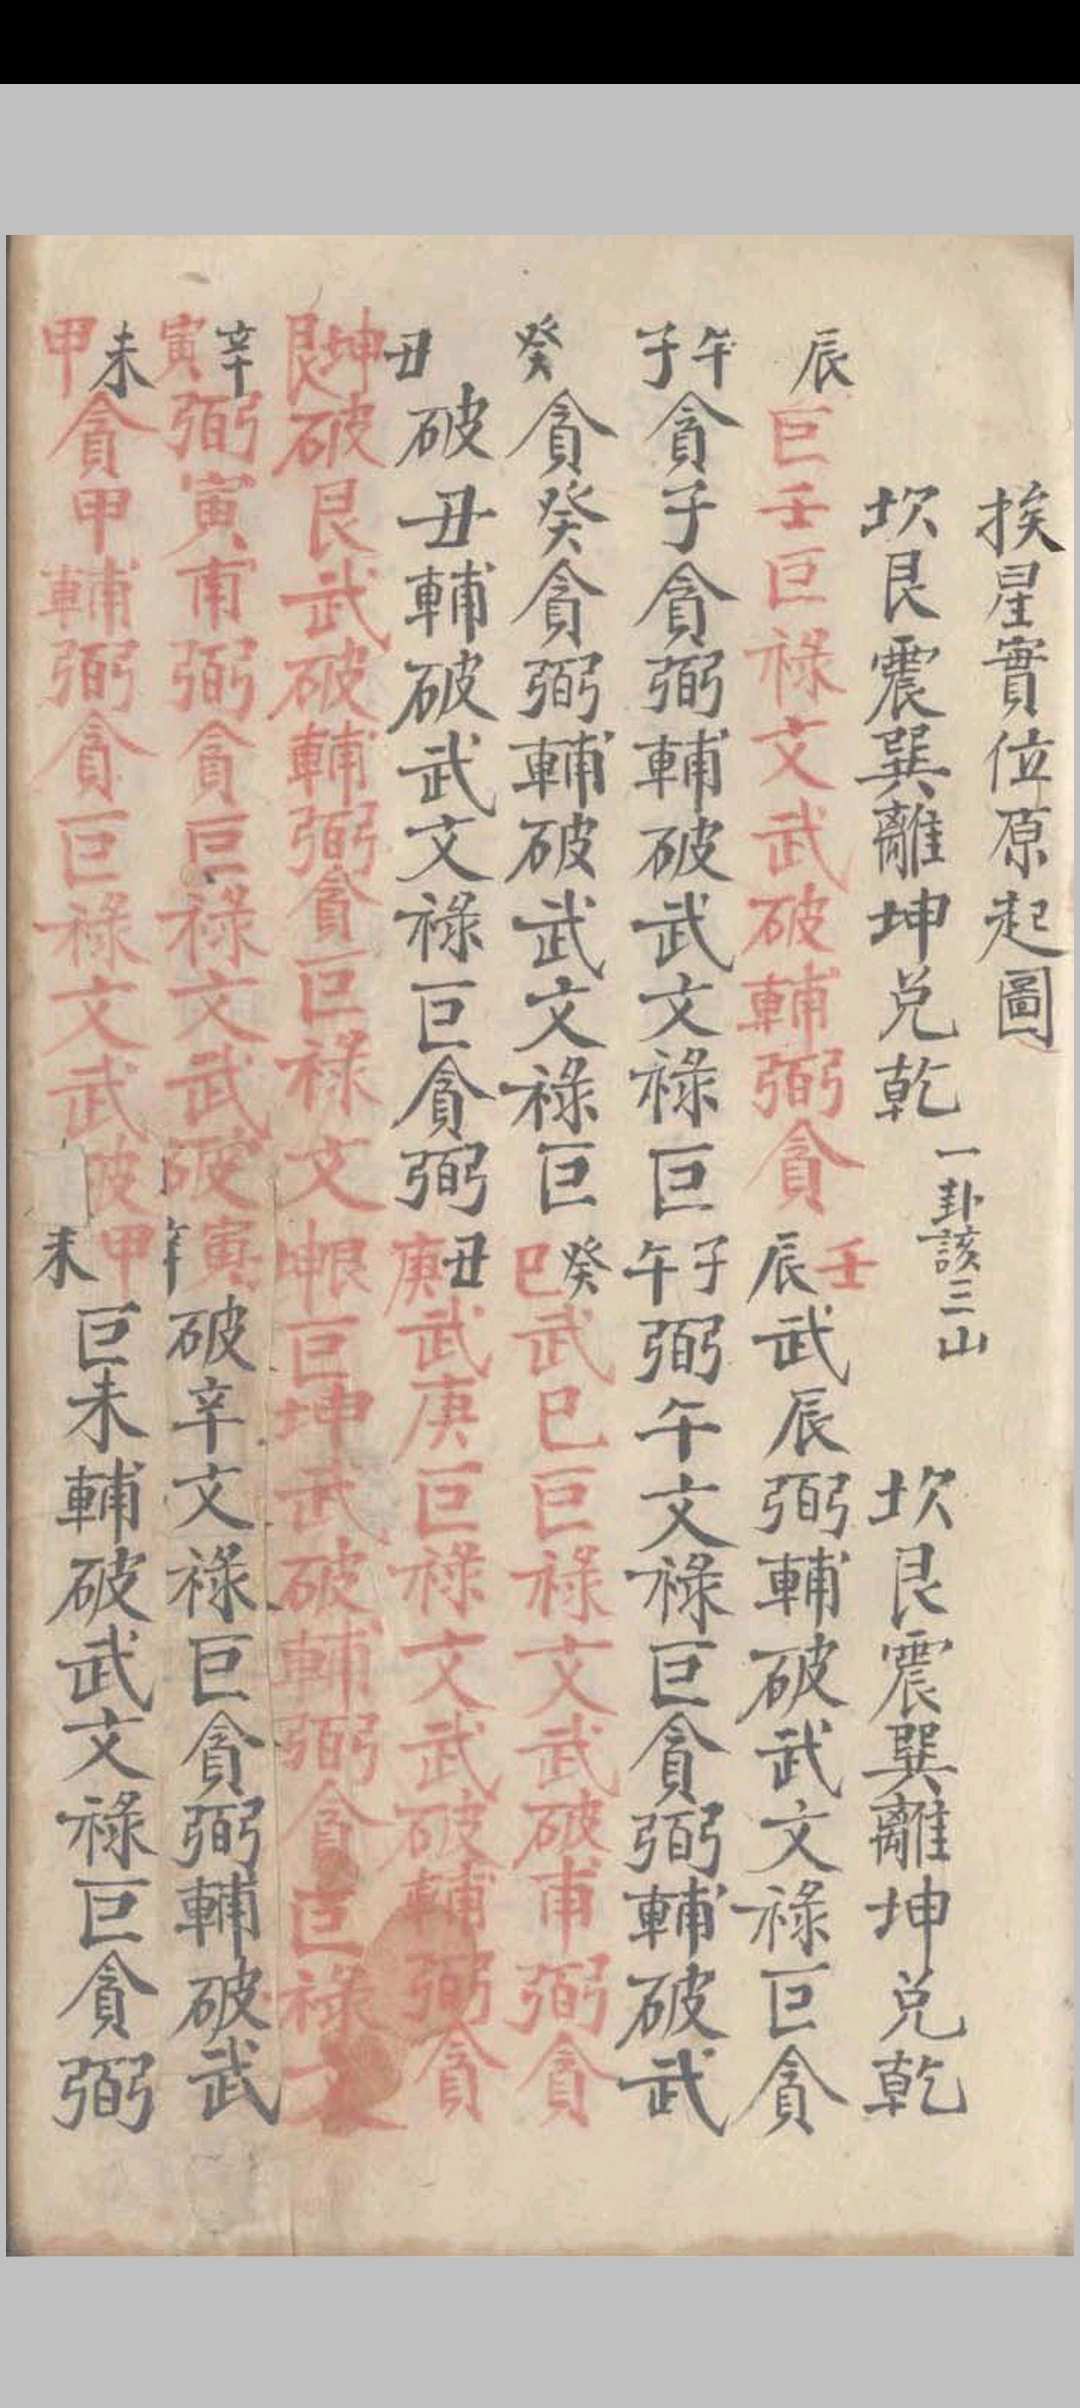 挨星實位原起圖
坎艮震巽離坤兌乾 一卦該三山 坎艮震巽離坤兌乾
辰 巨壬巨祿文武破輔弼貪 辰壬 武辰弼輔破武文祿巨貪
子午 貪子貪弼輔破武文祿巨 午子 弼午文祿巨貪弼輔破武
癸 貪癸貪弼輔破武文祿巨 巳癸 武巳巨祿文武破甫弼貪
丑 破丑輔破武文祿巨貪弼 庚丑 武庚巨祿文武破輔弼貪
艮坤 破艮武破輔弼貪巨祿文 坤艮 巨坤武破輔弼貪巨祿文
寅辛 弼寅甫弼貪巨祿文武破 辛寅 破辛文祿巨貪弼輔破武
甲未 貪甲輔弼貪巨祿文武破 未甲 巨未輔破武文祿巨貪弼